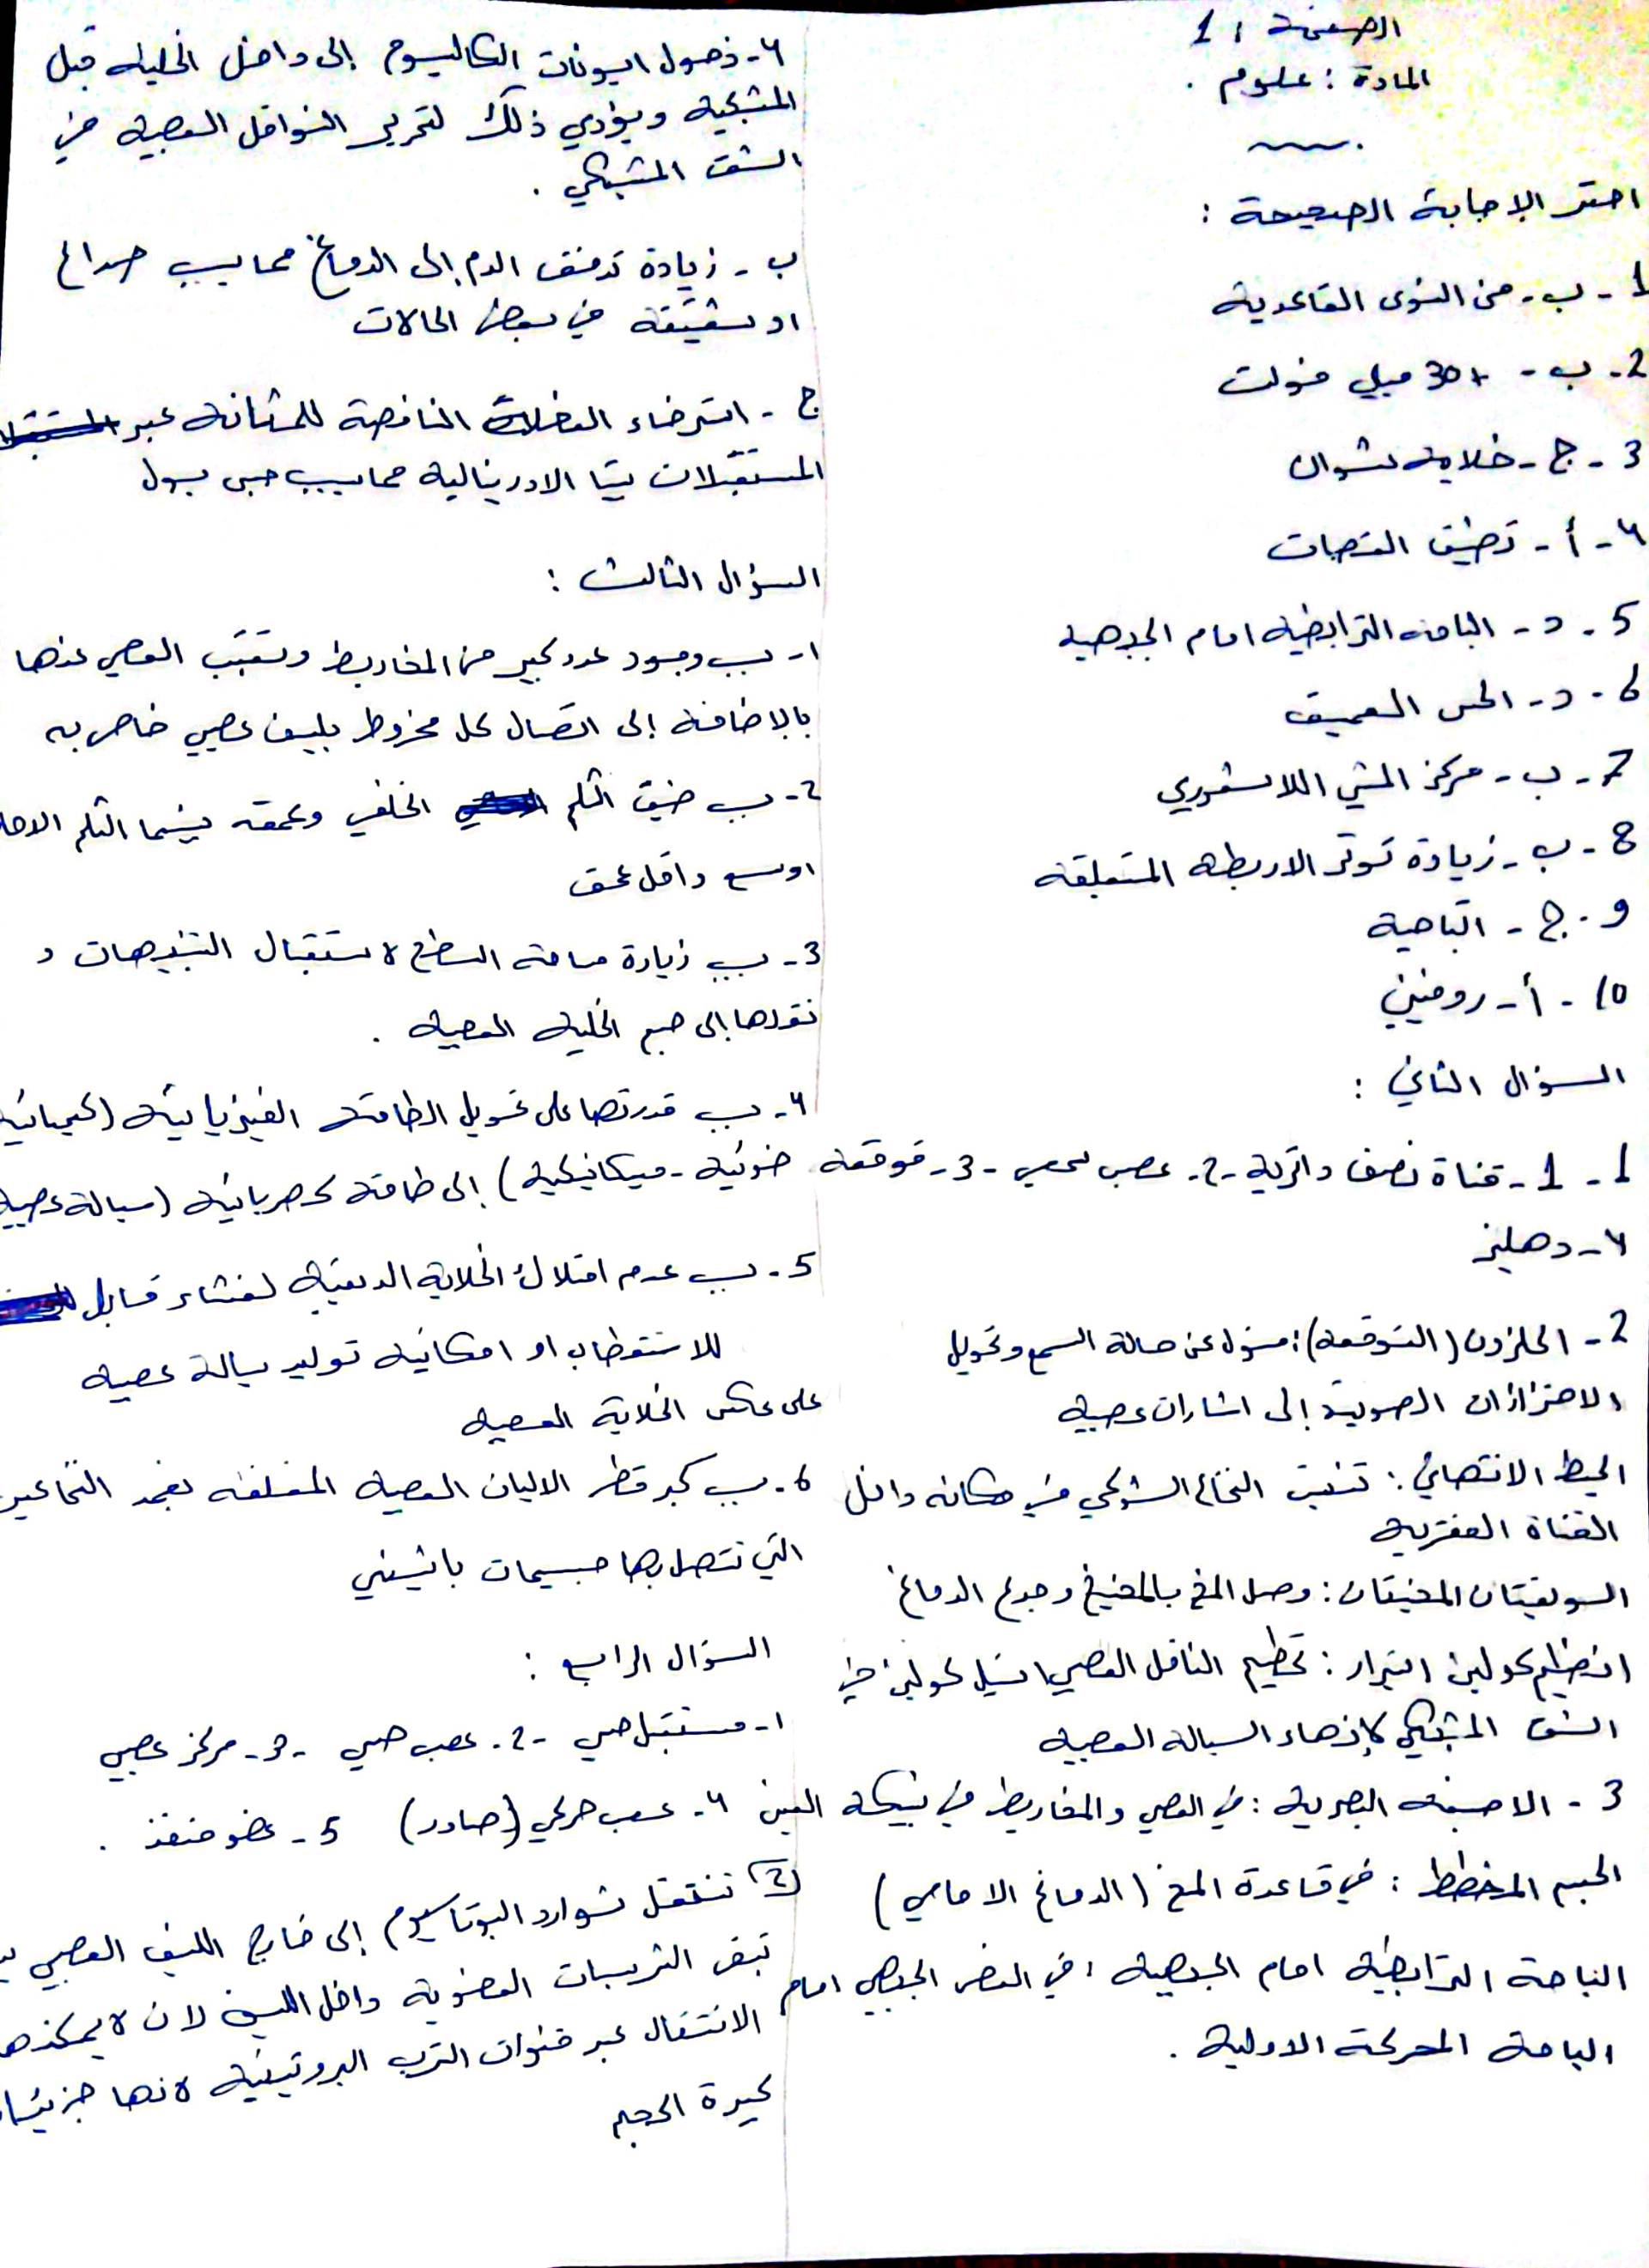 الصفحة : 1
المادة : علوم .
اختر الإجابة الصحيحة :
1 - ب - من النوى القاعدية
2 - ب - +30 ميلي فولت
3 - ج - خلايا شوان
4 - أ - تضيق القصبات
5 - د - الباحة الترابطية امام الجبهية
6 - د - الحس العميق
7 - ب - مركز المشي اللاشعوري
8 - ب - زيادة توتر الاربطة المتعلقة
9 - ج - التباهية
10 - أ - روفيني
السؤال الثاني :
1 - 1 - قناة نصف دائرية - 2 - عصب سمعي - 3 - قوقعة
4 - دهليز
2 - الحلزون (القوقعة) : مسؤول عن حالة السمع وتحويل
الاهتزازات الصوتية إلى اشارات عصبية
الخيط الانتهائي : تثبيت النخاع الشوكي في مكانه داخل
القناة الفقرية
السويقتان المخيتان : وصل المخ بالمخيخ وجذع الدماغ
انظيم كولين استيراز : تحطيم الناقل العصبي استيل كولين في
الشق المشبكي لإنهاء السيالة العصبية
3 - الاصبغة البصرية : في العصي والمخاريط في شبكة العين
الجسم المخطط : في قاعدة المخ (الدماغ الامامي)
الباحة الترابطية امام الجبهية : في الفص الجبهي امام
الباحة المحركة الاولية .
4 - دخول ايونات الكالسيوم إلى داخل الخلية قبل
المشبكية ويؤدي ذلك لتحرير النواقل العصبية في
الشق المشبكي .
ب - زيادة تدفق الدم إلى الدماغ مما يسبب صداع
او شقيقة في بعض الحالات
ج - استرخاء العضلات النافصة للمثانة عبر
المستقبلات بيتا الادرينالية مما يسبب حبس بول
السؤال الثالث :
1 - بسبب وجود عدد كبير من المخاريط وتغيب العصي عندها
بالاضافة إلى اتصال كل مخروط بليف عصبي خاص به
2 - بسبب ضيق الثلم الخلفي وعمقه بينما الثلم
اوسع واقل عمق
3 - بسبب زيادة مساحة السطح لاستقبال التنبيهات و
نقلها إلى جسم الخلية العصبية .
4 - بسبب قدرتها على تحويل الطاقة الفيزيائية (كيميائية
ضوئية - ميكانيكية) إلى طاقة كهربائية (سيالة عصبية
5 - بسبب عدم امتلاك الخلايا الدبقية لغشاء قابل
للاستقطاب او امكانية توليد سيالة عصبية
على عكس الخلايا العصبية
6 - بسبب كبر قطر الالياف العصبية المغلفة بغمد النخاعين
التي تتصل بها جسيمات باشيني
السؤال الرابع :
1 - مستقبل حسي - 2 - عصب حسي - 3 - مركز عصبي
4 - عصب حركي (صادر) 5 - عضو منفذ .
2 تنتقل شوارد البوتاسيوم إلى خارج الليف العصبي
تبقى الشرسبات العضوية داخل الليف لان لا يمكنها
الانتقال عبر قنوات التسرب البروتينية لانها جزيئات
كبيرة الحجم